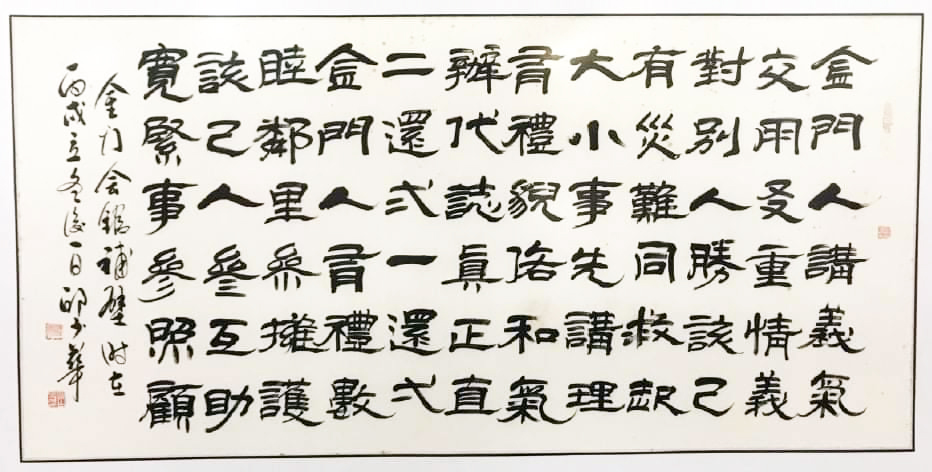 金門人講義氣
交朋友重情義
對別人勝該己
有災難同救起
大小事先講理
有禮貌佫和氣
辦代誌真正直
二還弍一還弌
金門人有禮數
睦鄰里叅擁護
該己人叄互助
寬緊事參照顧
金门会館補壁时在
丙戌立冬後一日邱少華